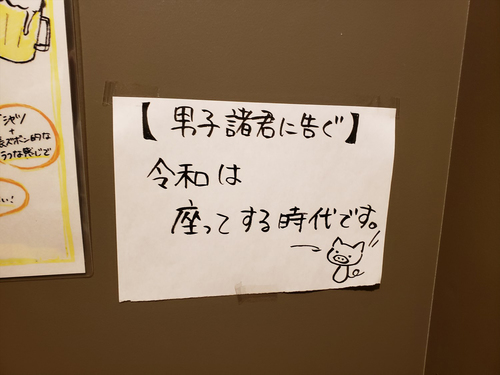 【男子諸君に告ぐ】
令和は
座ってする時代です。
シャツ
+
ズボン的な
ラフな感じで
い!